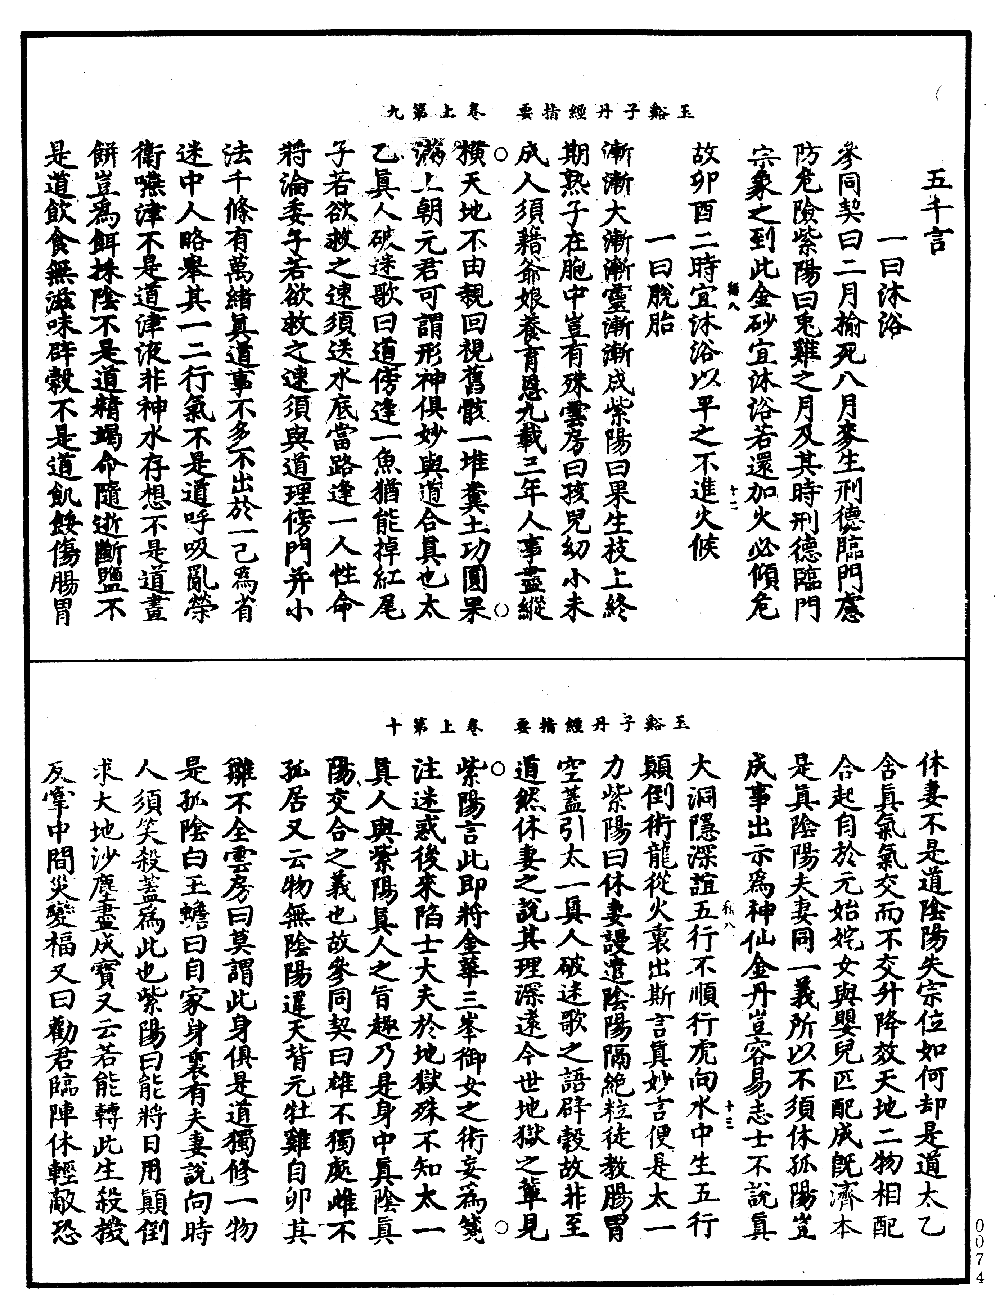 玉谿子丹經指要　卷上第九
五千言
一曰沐浴
參同契曰二月揄死八月麥生刑德臨門慮
防危險紫陽曰兎雞之月及其時刑德臨門
宗象之到此金砂宜沐浴若還加火必傾危
故卯酉二時宜沐浴以平之不進火候
一曰脫胎
漸漸大漸漸靈漸漸成紫陽曰果生枝上終
期熟子在胞中豈有殊雲房曰孩兒幼小未
成人須藉爺娘養育恩九載三年人事盡縱
橫天地不由親回視舊骸一堆糞土功圓果
滿上朝元君可謂形神俱妙與道合真也太
乙眞人破迷歌曰道傍逢一魚猶能掉紅尾
子若欲救之速須送水底當路逢一人性命
將淪委子若欲救之速須與道理傍門并小
法千條有萬緒眞道事不多不出於一己為省
迷中人略舉其一二行氣不是道呼吸亂榮
衛嚥津不是道津液非神水存想不是道畫
餅豈爲餌採陰不是道精竭命隨逝斷鹽不
是道飲食無滋味辟穀不是道飢餒傷腸胃
玉谿子丹經指要　卷上第十
休妻不是道陰陽失宗位如何却是道太乙
含眞氣氣交而不交升降效天地二物相配
合起自於元始姹女與嬰兒匹配成旣濟本
是眞陰陽夫妻同一義所以不須休孤陽豈
成事出示為神仙金丹豈容易志士不說眞
大洞隱深誼五行不順行虎向水中生五行
顚倒術龍從火裏出斯言眞妙言便是太一
力紫陽曰休妻謾遣陰陽隔絶粒徒教腸胃
空蓋引太一眞人破迷歌之語辟穀故非至
道然休妻之說其理深遠今世地獄之輩見
紫陽言此即將金華三峯御女之術妄為箋
注迷惑後來陷士大夫於地獄殊不知太一
眞人與紫陽眞人之旨趣乃是身中眞陰眞
陽交合之義也故參同契曰雄不獨處雌不
孤居又云物無陰陽違天背元牡雞自卵其
雛不全雲房曰莫謂此身俱是道獨修一物
是孤陰白玉蟾曰自家身裏有夫妻說向時
人須笑殺蓋為此也紫陽曰能將日用顚倒
求大地沙塵盡成寶又云若能轉此生殺機
反掌中間災變福又曰勸君臨陣休輕敵恐
0074